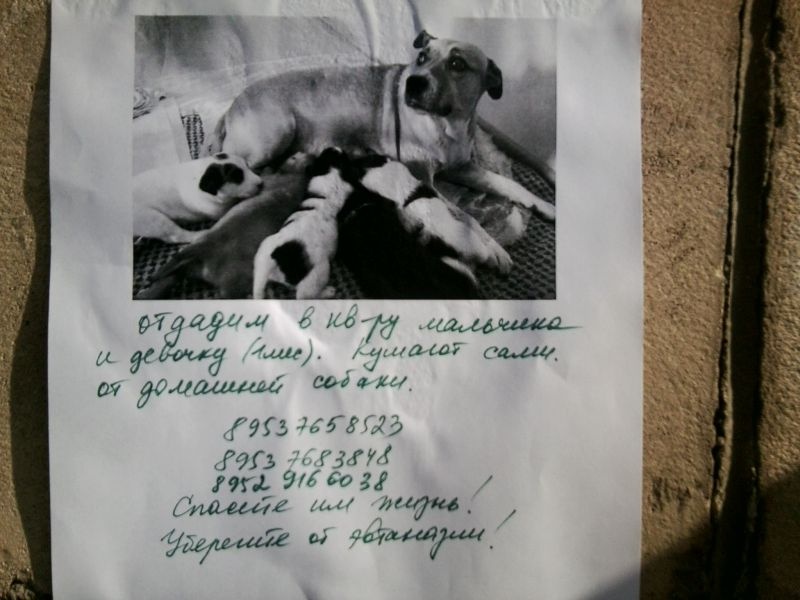 отдадим в кв-ру мальчика
и девочку (1мес). Кушают сами.
от домашней собаки.
89537658523
8953 7683848
8952 916 60 38
Спасите им жизнь!
Уберегите от эвтаназии!